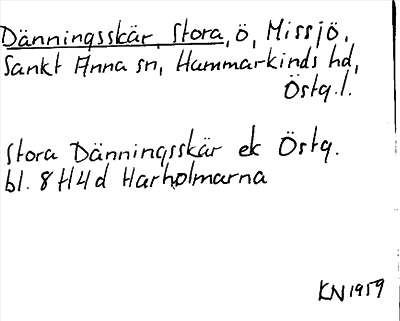 Dänningsskär, Stora, ö, Missjö,
Sankt Anna sn, Hammarkinds hd,
Östg.l.
Stora Dänningsskär ek Östg.
bl. 8H4d Harholmarna
KN1959